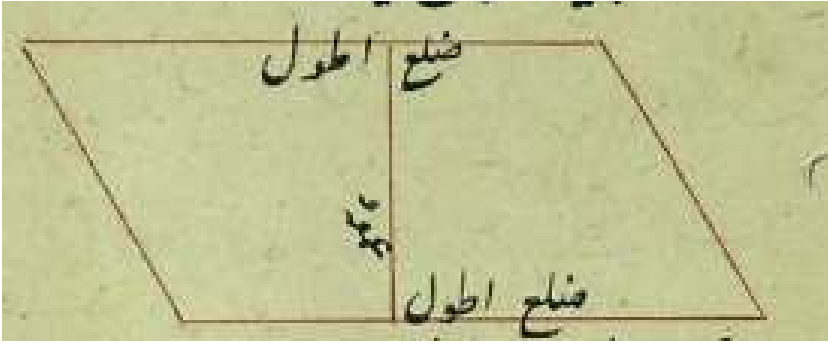 ضلع اطول
عمود
ضلع اطول